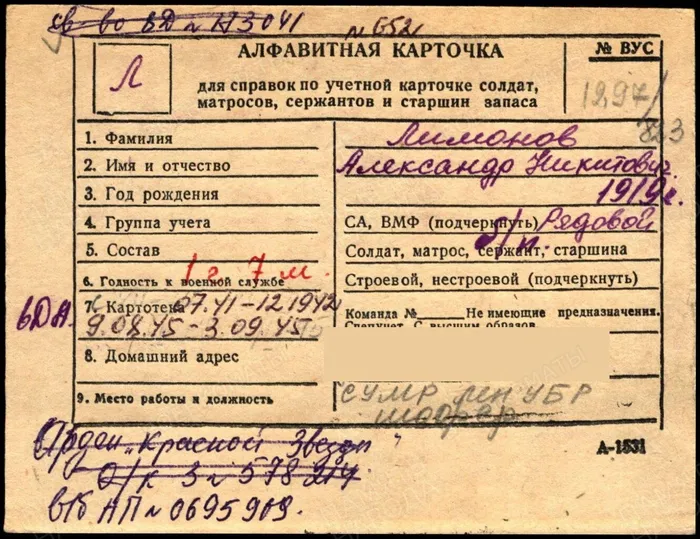 св-во ВД № 173041
№ 6521
Л
АЛФАВИТНАЯ КАРТОЧКА
№ ВУС
для справок по учетной карточке солдат,
матросов, сержантов и старшин запаса
1297/
883
1. Фамилия Лимонов
2. Имя и отчество Александр Никитович
3. Год рождения 1919г.
4. Группа учета СА, ВМФ (подчеркнуть) Рядовой
5. Состав Солдат, матрос, сержант, старшина
б/п.
6. Годность к военной службе Строевой, нестроевой (подчеркнуть)
1 г. 7 м.
7. Картотека 07.41-12.1942 Команда № Не имеющие предназначения.
вДА. 9.08.45-3.09.45 Спецучет. С высшим образов.
8. Домашний адрес
9. Место работы и должность СУМР УБР
шофер
Орден „Красной Звезды"
А-1531
О/к З № 578214
в/б АП № 0695909.